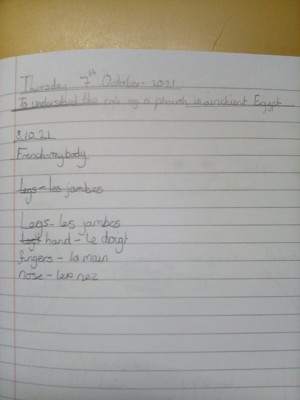 Thursday 7th October 2021
To understand the role of a pharoh in anchient Egypt
8.10.21
French-my body
legs - les jambes
Legs - les jambes
hand - le doigt
fingers - la main
nose - le nez